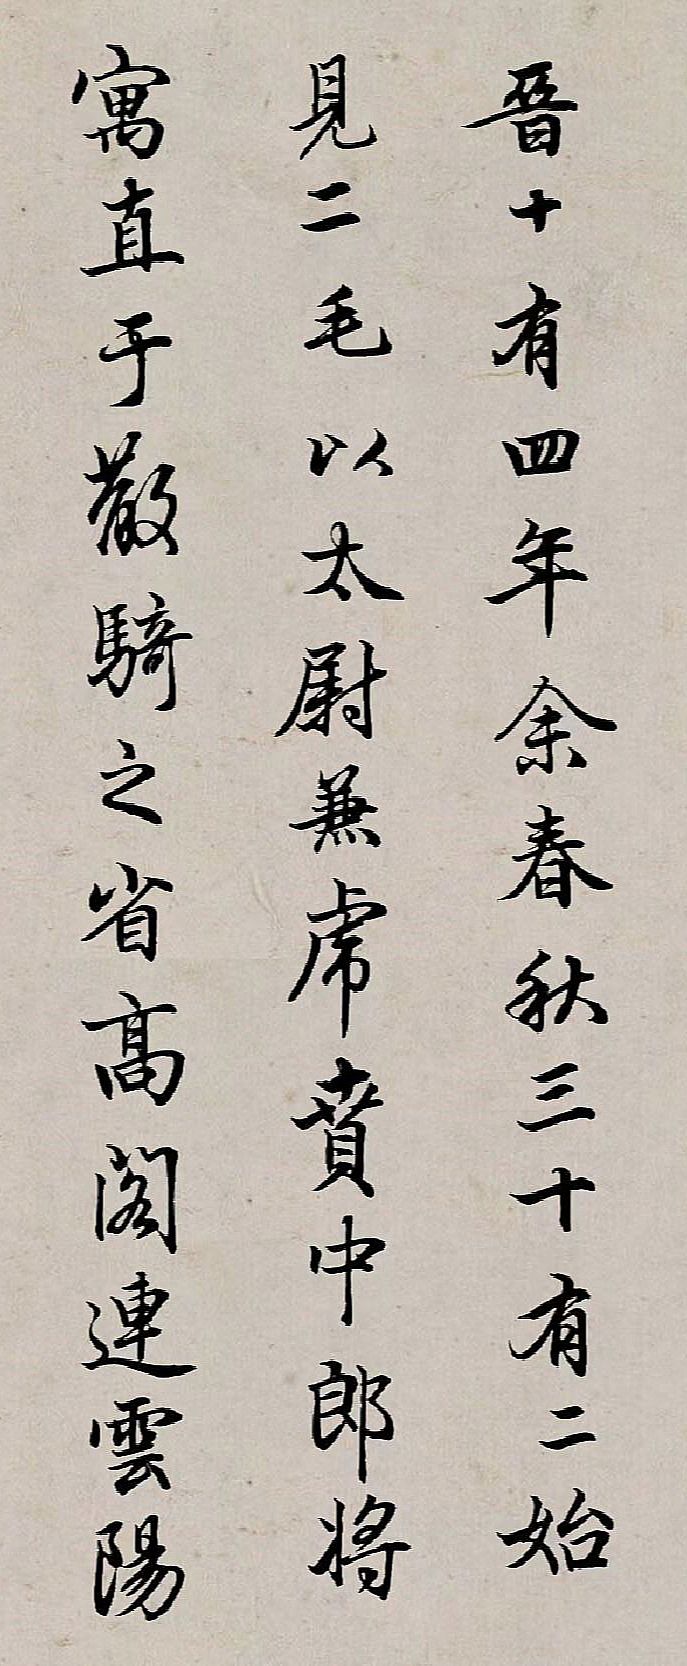 晉十有四年余春秋三十有二始
見二毛以太尉兼虎賁中郎將
寓直于散騎之省高閣連雲陽